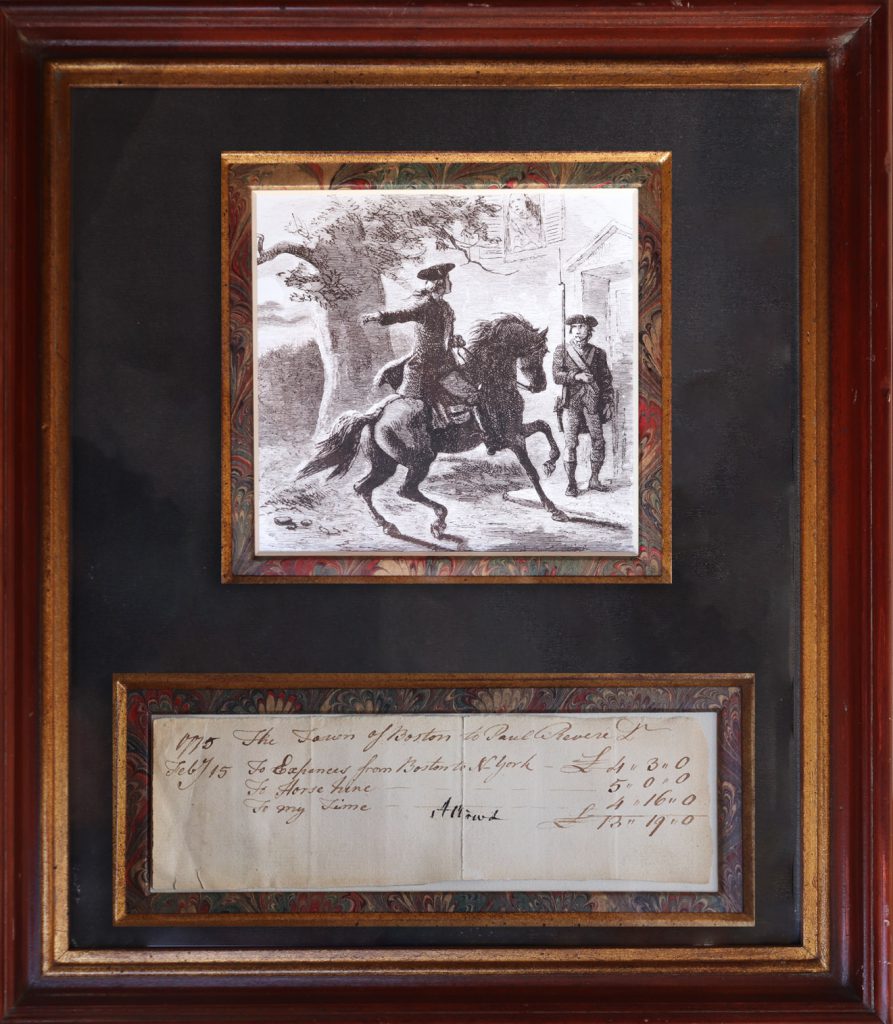 1775 The Town of Boston to Paul Revere Dr
Feby 15 To Expences from Boston to N York — £ 4 " 3 " 0
To Horse hire — 5 " 0 " 0
To my Time — 4 " 16 " 0
Allowd £ 13 " 19 " 0